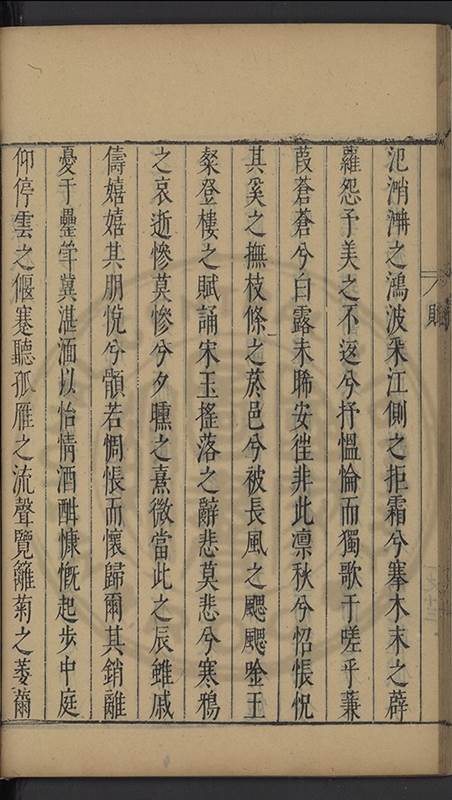 賦
氾㴋瀰之鴻波采江側之拒霜兮搴木末之薜
蘿怨予美之不返兮抒愠惀而獨歌于嗟乎蒹
葭蒼蒼兮白露未晞安徃非此凛秋兮怊悵怳
其奚之撫枝條之菸邑兮被長風之颸颸唫王
粲登樓之賦誦宋玉搖落之辭悲莫悲兮寒鴉
之哀逝慘莫慘兮夕曛之熹微當此之辰雖戚
儔嬉嬉其朋悅兮顫若惆悵而懷歸爾其銷離
憂于罍斝冀湛湎以怡情酒酣慷慨起步中庭
仰停雲之偃蹇聽孤雁之流聲覽籬菊之萎薾